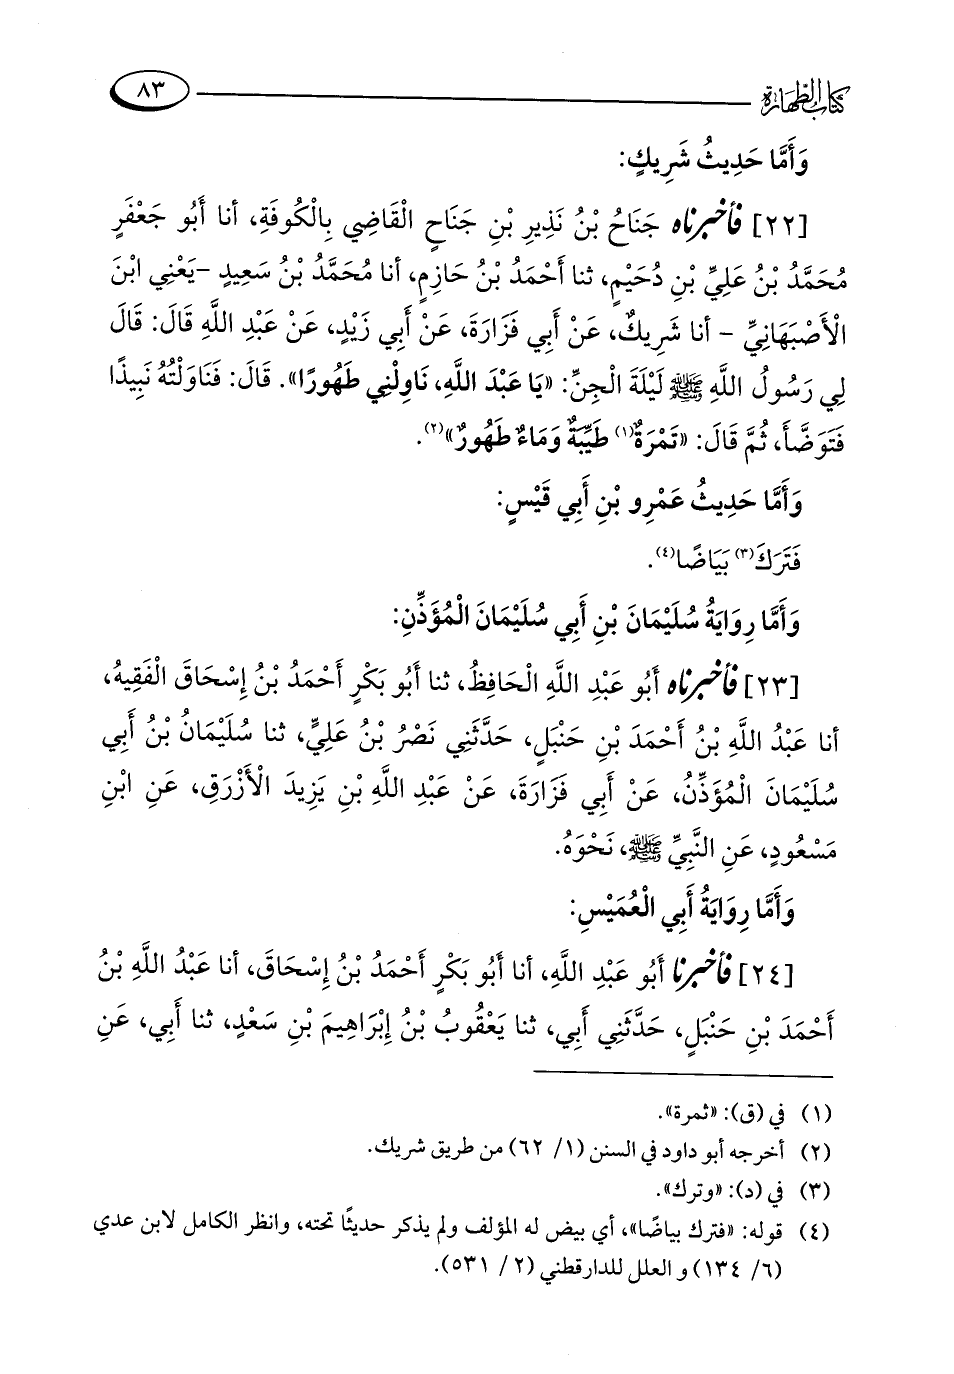 كتاب الطهارة ٨٣
وَأَمَّا حَدِيثُ شَرِيكٍ:
[٢٢] فأخبرناه جَنَاحُ بْنُ نَذِيرِ بْنِ جَنَاحٍ الْقَاضِي بِالْكُوفَةِ، أنا أَبُو جَعْفَرٍ
مُحَمَّدُ بْنُ عَلِيِّ بْنِ دُحَيْمٍ، ثنا أَحْمَدُ بْنُ حَازِمٍ، أنا مُحَمَّدُ بْنُ سَعِيدٍ -يَعْنِي ابْنَ
الْأَصْبَهَانِيِّ - أنا شَرِيكٌ، عَنْ أَبِي فَزَارَةَ، عَنْ أَبِي زَيْدٍ، عَنْ عَبْدِ اللَّهِ قَالَ: قَالَ
لِي رَسُولُ اللَّهِ ﷺ لَيْلَةَ الْجِنِّ: «يَا عَبْدَ اللَّهِ، نَاوِلْنِي طَهُورًا». قَالَ: فَنَاوَلْتُهُ نَبِيذًا
فَتَوَضَّأَ، ثُمَّ قَالَ: «تَمْرَةٌ(١) طَيِّبَةٌ وَمَاءٌ طَهُورٌ»(٢).
وَأَمَّا حَدِيثُ عَمْرِو بْنِ أَبِي قَيْسٍ:
فَتَرَكَ(٣) بَيَاضًا(٤).
وَأَمَّا رِوَايَةُ سُلَيْمَانَ بْنِ أَبِي سُلَيْمَانَ الْمُؤَذِّنِ:
[٢٣] فأخبرناه أَبُو عَبْدِ اللَّهِ الْحَافِظُ، ثنا أَبُو بَكْرٍ أَحْمَدُ بْنُ إِسْحَاقَ الْفَقِيهُ،
أنا عَبْدُ اللَّهِ بْنُ أَحْمَدَ بْنِ حَنْبَلٍ، حَدَّثَنِي نَصْرُ بْنُ عَلِيٍّ، ثنا سُلَيْمَانُ بْنُ أَبِي
سُلَيْمَانَ الْمُؤَذِّنُ، عَنْ أَبِي فَزَارَةَ، عَنْ عَبْدِ اللَّهِ بْنِ يَزِيدَ الْأَزْرَقِ، عَنِ ابْنِ
مَسْعُودٍ، عَنِ النَّبِيِّ ﷺ، نَحْوَهُ.
وَأَمَّا رِوَايَةُ أَبِي الْعُمَيْسِ:
[٢٤] فأخبرنا أَبُو عَبْدِ اللَّهِ، أنا أَبُو بَكْرٍ أَحْمَدُ بْنُ إِسْحَاقَ، أنا عَبْدُ اللَّهِ بْنُ
أَحْمَدَ بْنِ حَنْبَلٍ، حَدَّثَنِي أَبِي، ثنا يَعْقُوبُ بْنُ إِبْرَاهِيمَ بْنِ سَعْدٍ، ثنا أَبِي، عَنِ
(١) في (ق): «ثمرة».
(٢) أخرجه أبو داود في السنن (١/ ٦٢) من طريق شريك.
(٣) في (د): «وترك».
(٤) قوله: «فترك بياضًا»، أي بيض له المؤلف ولم يذكر حديثًا تحته، وانظر الكامل لابن عدي
(٦/ ١٣٤) و العلل للدارقطني (٢/ ٥٣١).